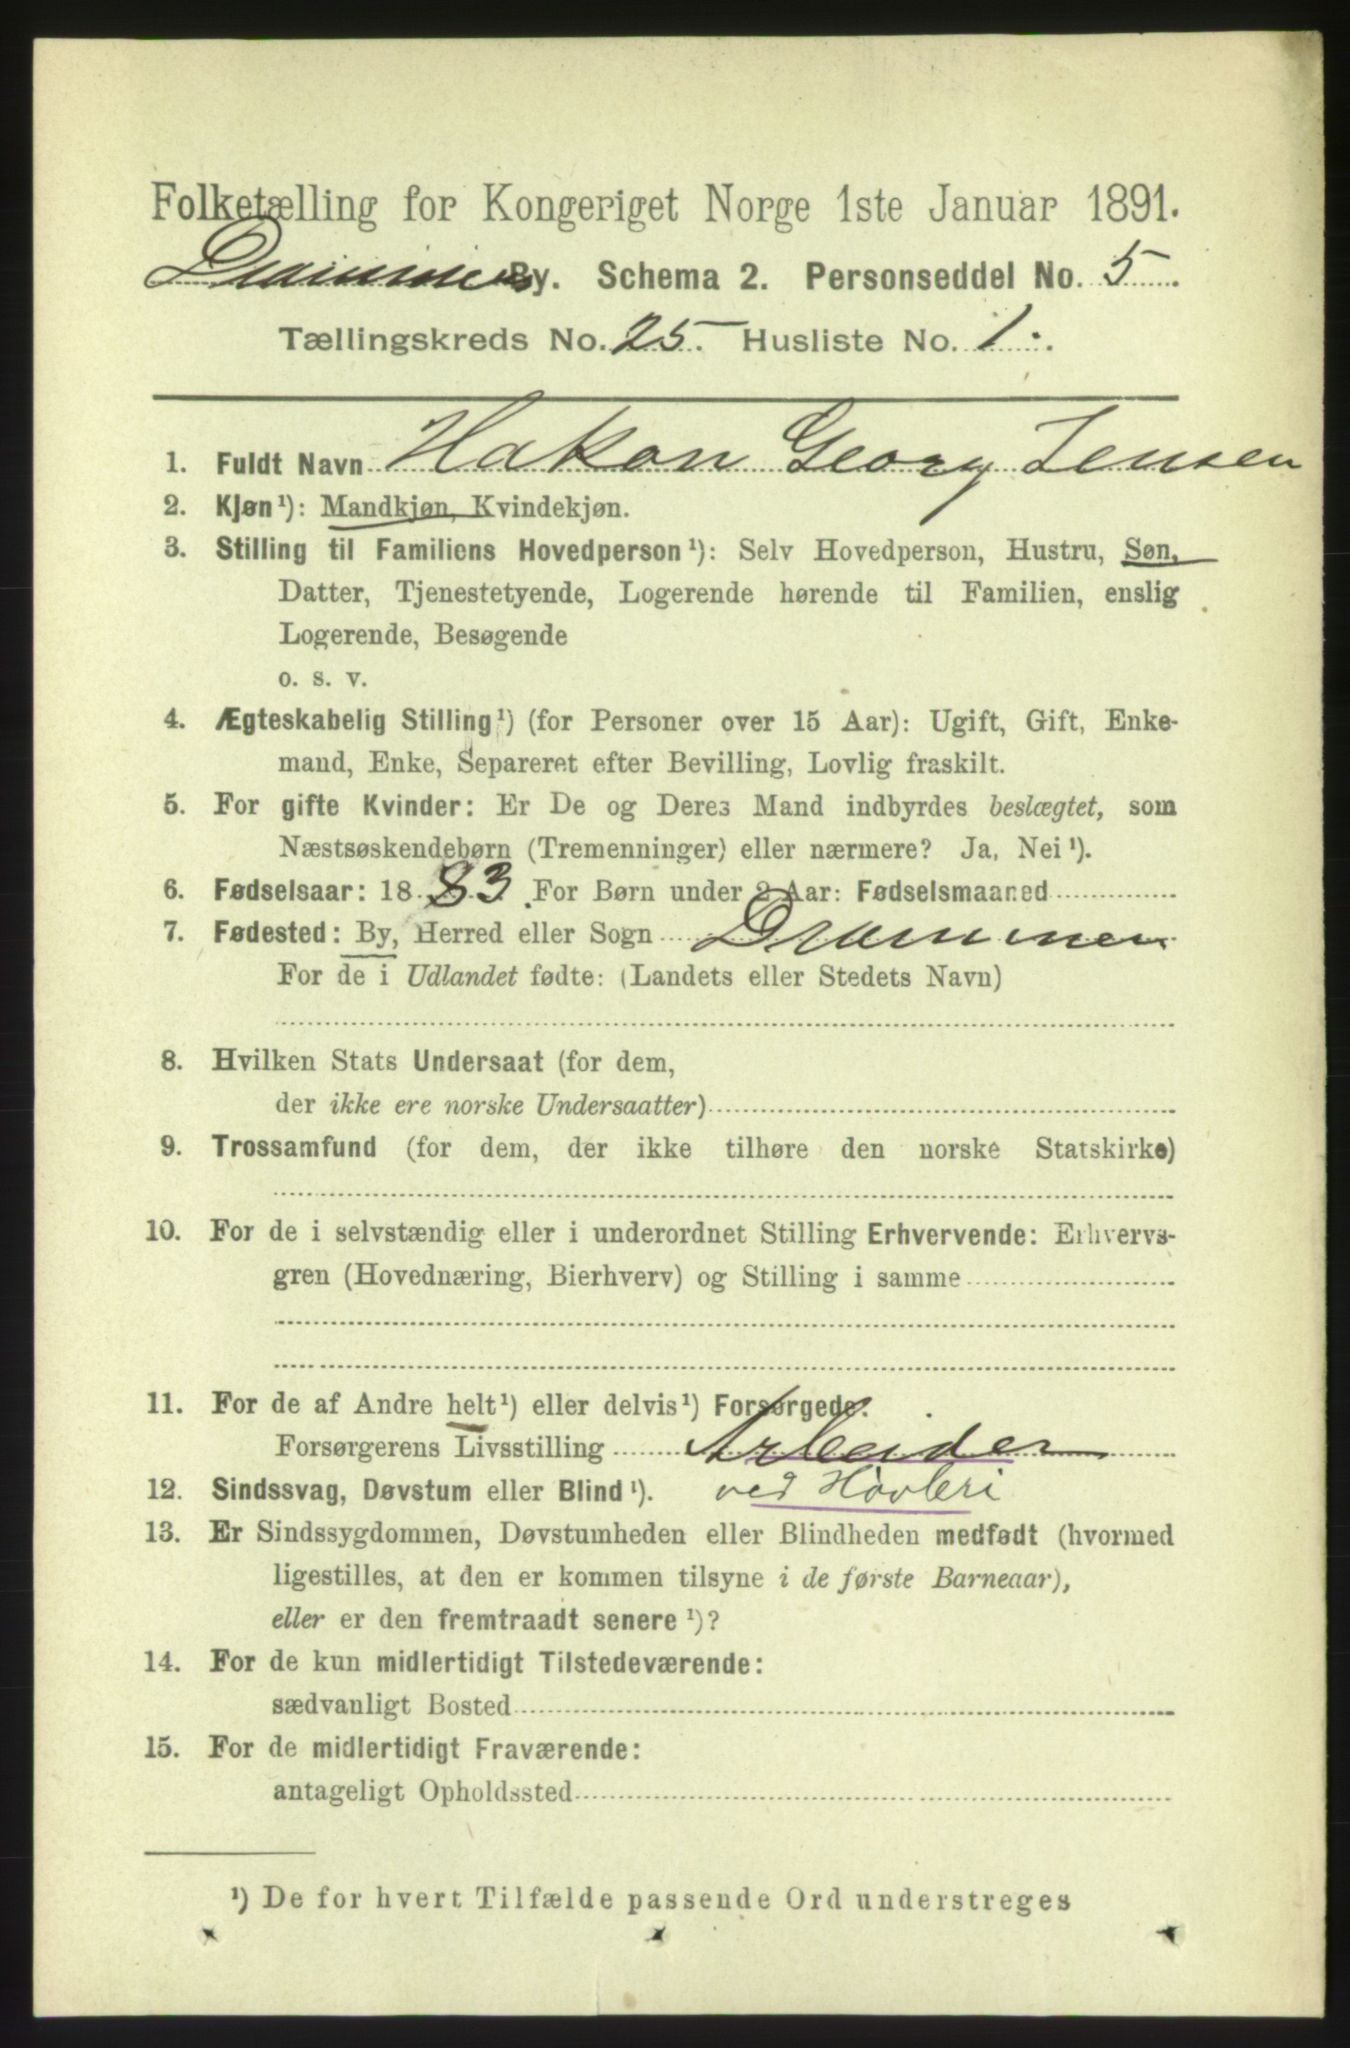 Folketælling for Kongeriget Norge 1ste Januar 1891.
Drammen By. Schema 2. Personseddel No. 5
Tællingskreds No. 25. Husliste No. 1.
1. Fuldt Navn Hakon Georg Jensen
2. Kjøn¹): Mandkjøn, Kvindekjøn.
3. Stilling til Familiens Hovedperson¹): Selv Hovedperson, Hustru, Søn,
Datter, Tjenestetyende, Logerende hørende til Familien, enslig
Logerende, Besøgende
o. s. v.
4. Ægteskabelig Stilling¹) (for Personer over 15 Aar): Ugift, Gift, Enke-
mand, Enke, Separeret efter Bevilling, Lovlig fraskilt.
5. For gifte Kvinder: Er De og Deres Mand indbyrdes beslægtet, som
Næstsøskendebørn (Tremenninger) eller nærmere? Ja, Nei¹).
6. Fødselsaar: 1883. For Børn under 2 Aar: Fødselsmaaned
7. Fødested: By, Herred eller Sogn Drammen
For de i Udlandet fødte: (Landets eller Stedets Navn)
8. Hvilken Stats Undersaat (for dem,
der ikke ere norske Undersaatter)
9. Trossamfund (for dem, der ikke tilhøre den norske Statskirke)
10. For de i selvstændig eller i underordnet Stilling Erhvervende: Erhvervs-
gren (Hovednæring, Bierhverv) og Stilling i samme
11. For de af Andre helt¹) eller delvis¹) Forsørgede:
Forsørgerens Livsstilling Arbeider
12. Sindssvag, Døvstum eller Blind¹). ved Høvleri
13. Er Sindssygdommen, Døvstumheden eller Blindheden medfødt (hvormed
ligestilles, at den er kommen tilsyne i de første Barneaar),
eller er den fremtraadt senere¹)?
14. For de kun midlertidigt Tilstedeværende:
sædvanligt Bosted
15. For de midlertidigt Fraværende:
antageligt Opholdssted
¹) De for hvert Tilfælde passende Ord understreges